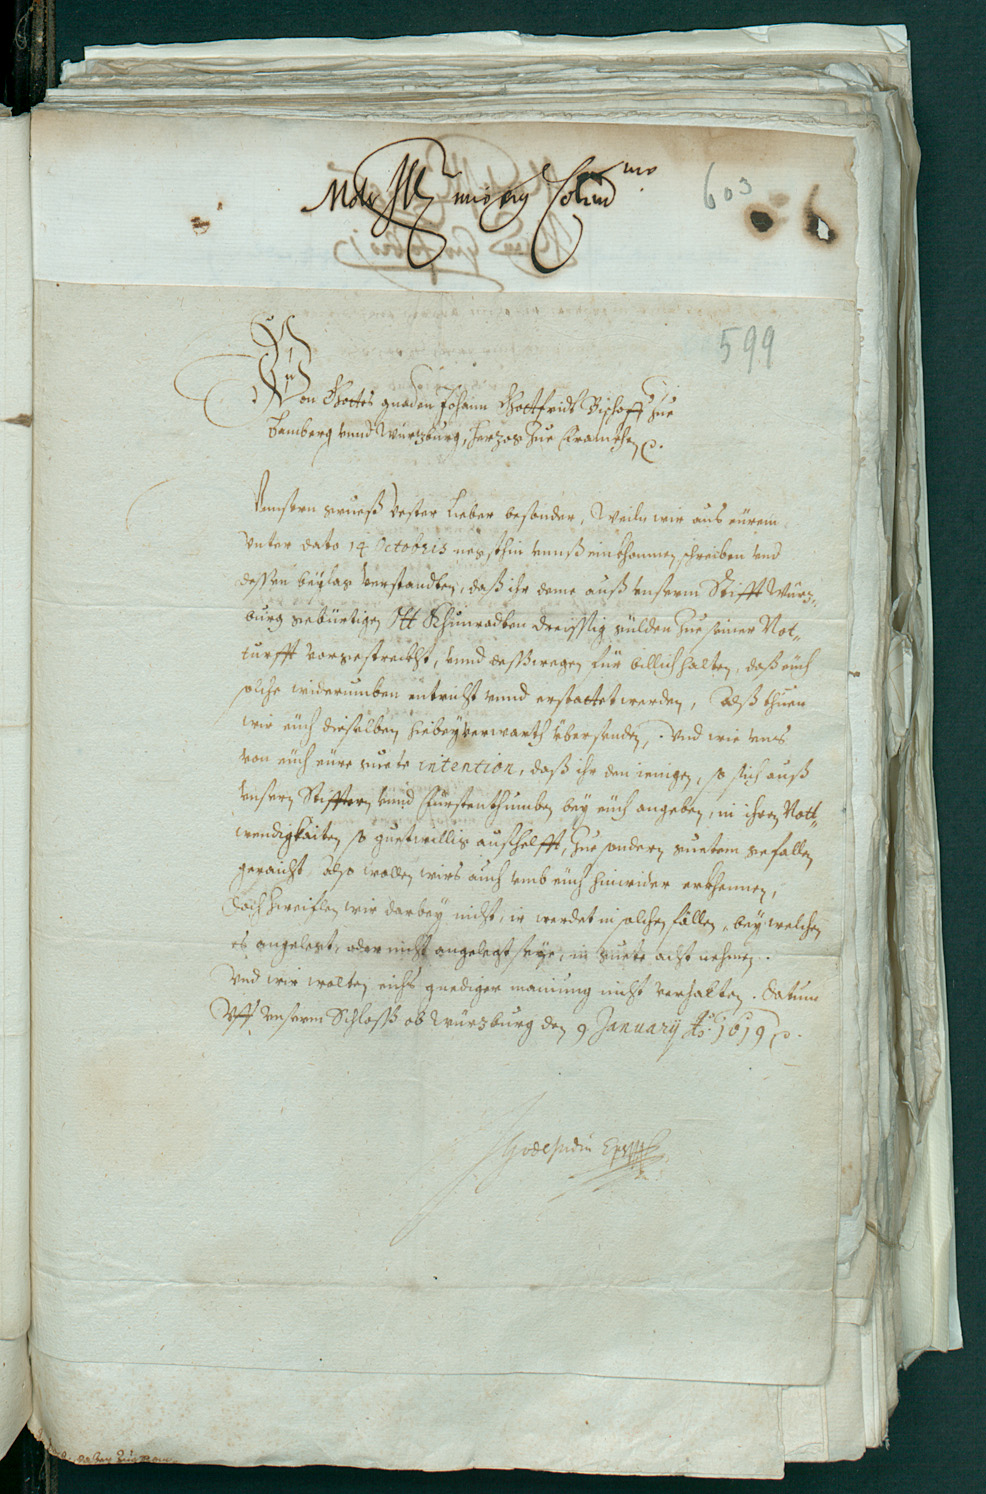 603
599
Von Gottes gnaden Johann Gottfridt Bischoff zue
Bamberg unnd Würtzburg, Hertzog zue Francken p.
Unnsern grueß Vester Lieber besonder, Weiln wir aus eürem
unter dato 14 Octobris nechsthin unnß einkhommen schreiben und
dessen beylag verstandten, daß ihr deme auß unserm Stifft Würtz-
burg gebürtigen Khunradten dreissig gülden zue seiner Not-
turfft vorgestreckht, unnd desswegen für billich halten, daß eüch
solche widerumben entricht unnd erstattet werden, Alß thuen
wir eüch dieselben hiebey verwarth übersenden, Und wie uns
von eüch eüre guete intention, daß ihr den ienigen, so sich auß
unsern Stifftern unnd Fürstenthumben bey eüch angeben, in ihren Nott-
wendigkaiten so guetwillig außhelfft, zue sondern guetem gefallen
geraicht, also wollen wirs auch umb eüch hinwider erkhennen,
Doch zweiflen wir darbey nicht, ir werdet in solchen fällen, bey welchen
es angelegt, oder nicht angelegt seye, in guete acht nehmen.
Und wir wolten eichs gnediger mainung nicht verhalten. Datum
Uff unserm Schloss ob Würtzburg den 9 January Ao. 1619 p.